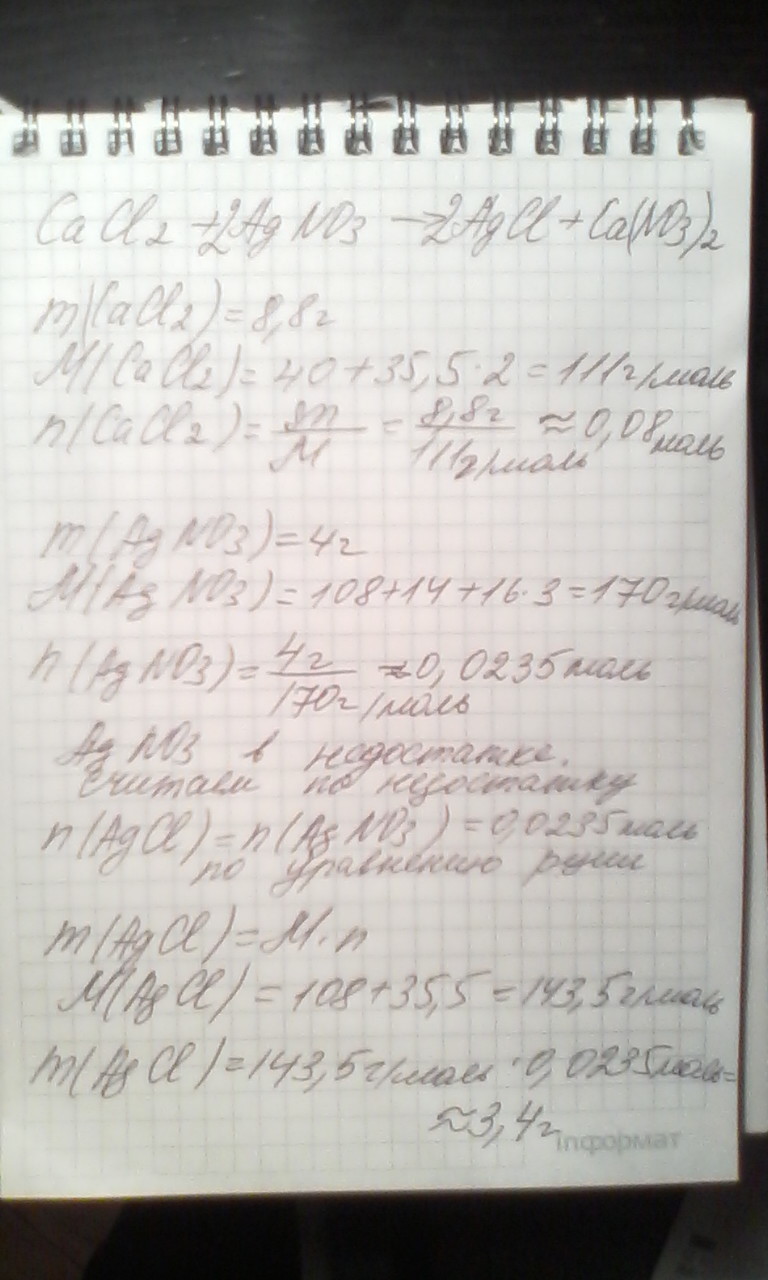 CaCl2 + 2AgNO3 → 2AgCl + Ca(NO3)2
m(CaCl2) = 8,8г
M(CaCl2) = 40 + 35,5·2 = 111г/моль
n(CaCl2) = m/M = 8,8г/111г/моль ≈ 0,08моль
m(AgNO3) = 4г
M(AgNO3) = 108+14+16·3 = 170г/моль
n(AgNO3) = 4г/170г/моль ≈ 0,0235моль
AgNO3 в недостатке.
Считаем по недостатку
n(AgCl) = n(AgNO3) = 0,0235моль
по уравнению р-ции
m(AgCl) = M·n
M(AgCl) = 108+35,5 = 143,5г/моль
m(AgCl) = 143,5г/моль · 0,0235моль =
≈ 3,4г
inформат